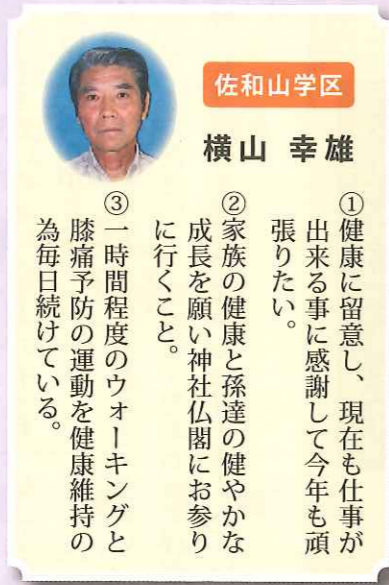 佐和山学区
横山 幸雄
①健康に留意し、現在も仕事が
出来る事に感謝して今年も頑
張りたい。
②家族の健康と孫達の健やかな
成長を願い神社仏閣にお参り
に行くこと。
③一時間程度のウォーキングと
膝痛予防の運動を健康維持の
為毎日続けている。